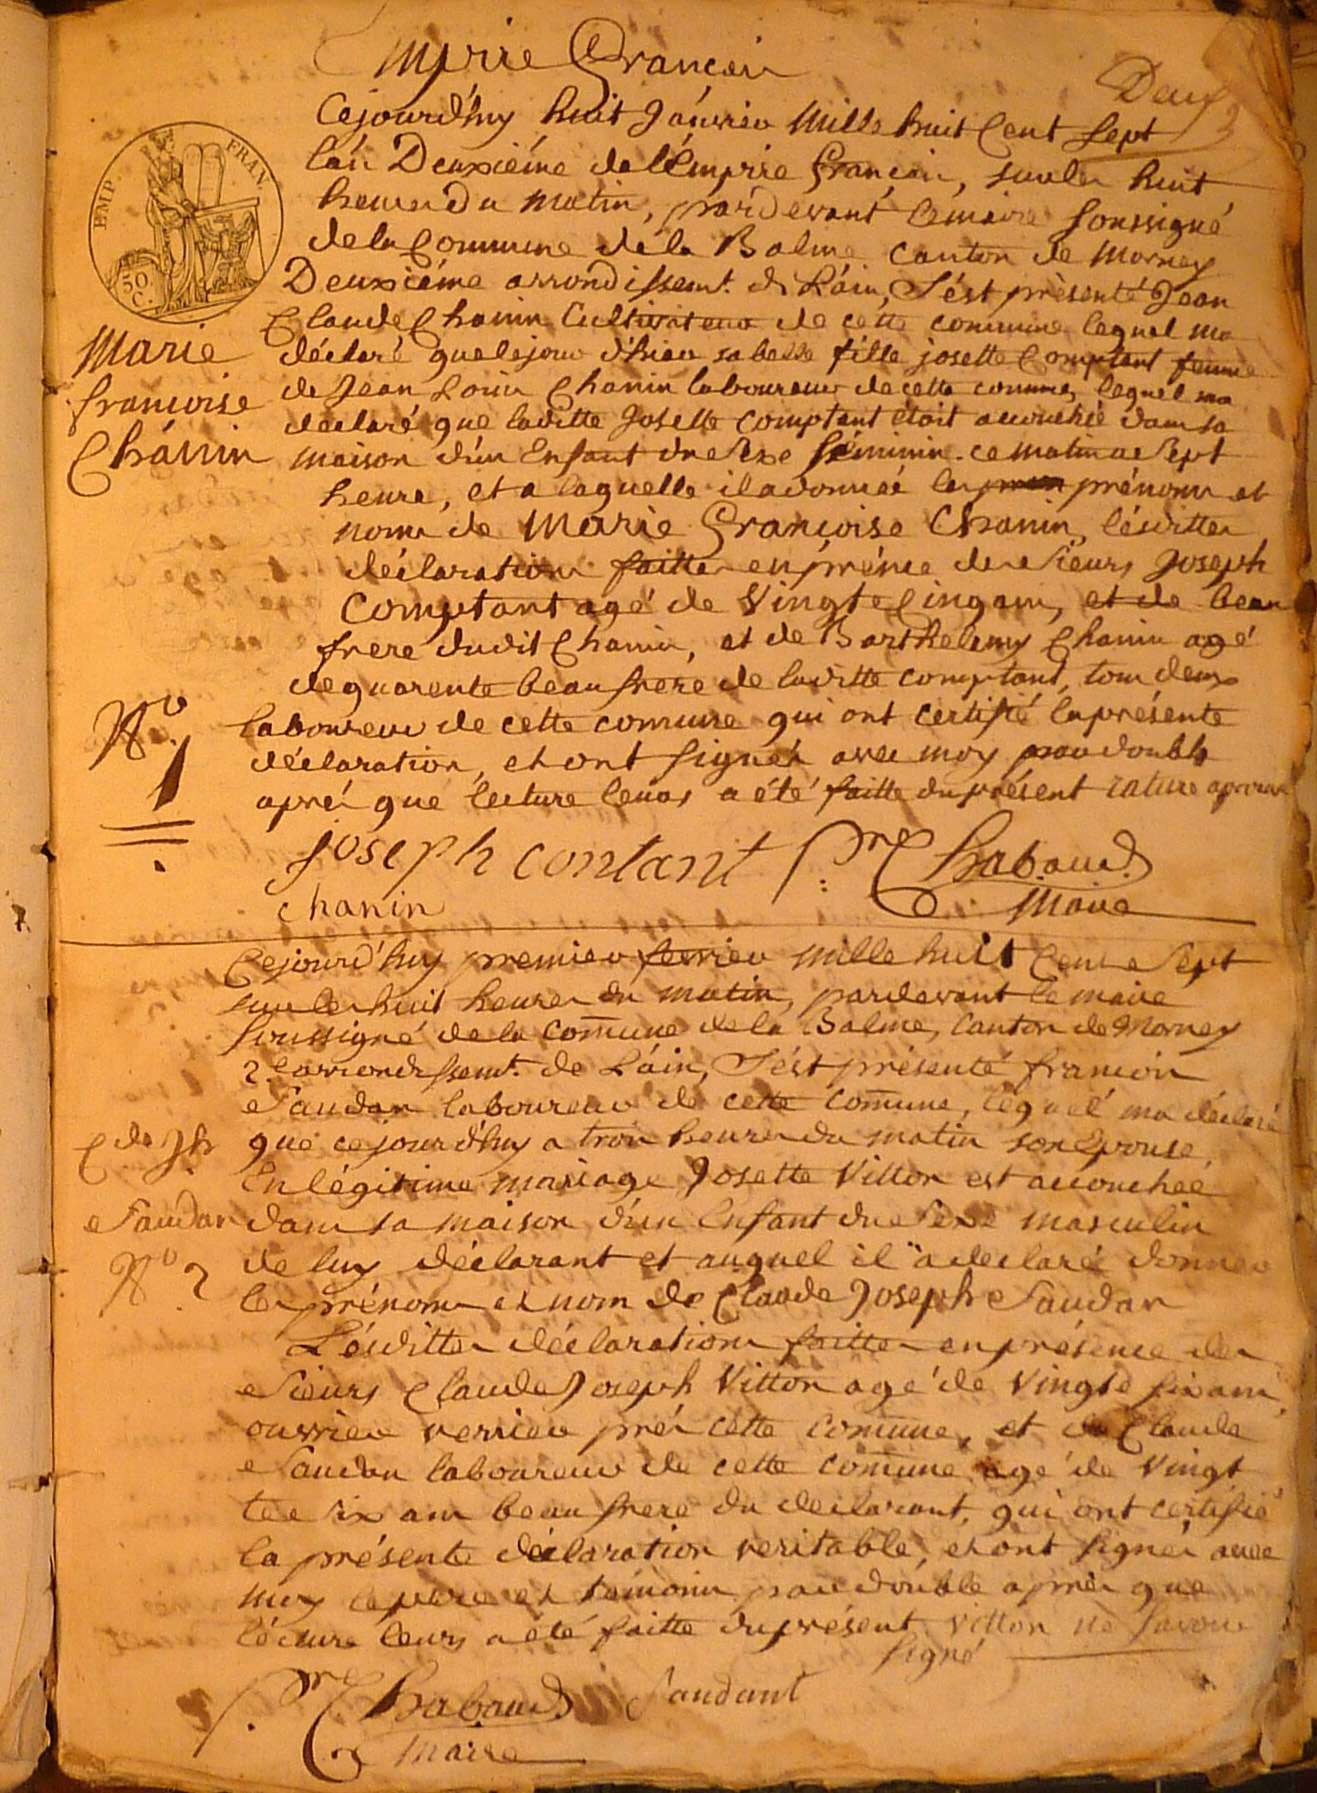 Empire Francois
Deux
Cejourd'huy huit Janvier Mille huit Cent Sept
l'an Deuxiéme de l'Empire Francois, sur les huit
heures du matin, pardevant le maire soussigné
de la Commune de la Balme canton de Mornay
Deuxiéme arrondissemt. de L'áin, S'ést présenté Jean
Claude Chanin Cultivateur de cette commune lequel ma
déclaré que le jour d'hier sa belle fille josette Comptant femme
de Jean Louis Chanin laboureur de cette commune, lequel ma
déclaré que laditte Josette Comptant étoit accouchée dans sa
maison d'un Enfant du Sexe féminin ce matin a Sept
heure, et a laquelle il a donnée les prénoms et
noms de Marie Françoise Chanin, lésdittes
déclarations faittes en présence des Sieurs Joseph
Comptant agé de Vingt Cinq ans, et de beau
frere dudit Chanin, et de Barthelemy Chanin agé
de quarente beau frere de laditte comptant, tous deux
laboureur de cette comune qui ont certifié la présente
déclaration, et ont signés avec moy par double
aprés que lecture leurs a été faitte du présent rature aprouvé
joseph contant
Pre. Chabaud
chanin
Maire
EMP. FRAN.
50 C.
Marie
francoise
Chánin
No.
1
Cejourd'huy premier fevrier mille huit Cent Sept
sur les huit heures du matin, pardevant le maire
Soussigné de la Comune de la Balme, Canton de Mornay
2e arrondissemt. de L'áin, S'ést présenté francois
Saudan laboureur de cette comune, lequel ma déclaré
que cejourd'huy a trois heures du matin son Epouse
En légitime mariage Josette Vitton est accouchée
dans sa maison d'un Enfant du Sexe masculin
de luy déclarant et auquel il a déclaré donner
les prénoms et nom de Claude Joseph Saudan
Lésdittes déclarations faittes en présence des
Sieurs Claude Joseph Vitton agé de Vingt six ans
ouvrier verrier prés cette comune, et de Claude
Saudan laboureur de cette comune agé de Vingt
te six ans beau frere du declarant, qui ont certifié
la présente déclaration veritable, et ont signés avec
moy le pere et témoins par double aprés que
lécture leurs a été faitte du présent Vitton ne savoir
signé
Pre. Chabaud
Saudant
Maire
C de Jh
Saudan
No. 2